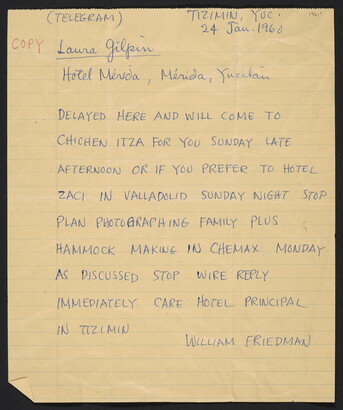 (TELEGRAM) TIZIMIN, YUC.
24 Jan. 1960
COPY
Laura Gilpin
Hotel Mérida, Mérida, Yucatán
DELAYED HERE AND WILL COME TO
CHICHEN ITZA FOR YOU SUNDAY LATE
AFTERNOON OR IF YOU PREFER TO HOTEL
ZACI IN VALLADOLID SUNDAY NIGHT STOP
PLAN PHOTOGRAPHING FAMILY PLUS
HAMMOCK MAKING IN CHEMAX MONDAY
AS DISCUSSED STOP WIRE REPLY
IMMEDIATELY CARE HOTEL PRINCIPAL
IN TIZIMIN
WILLIAM FRIEDMAN